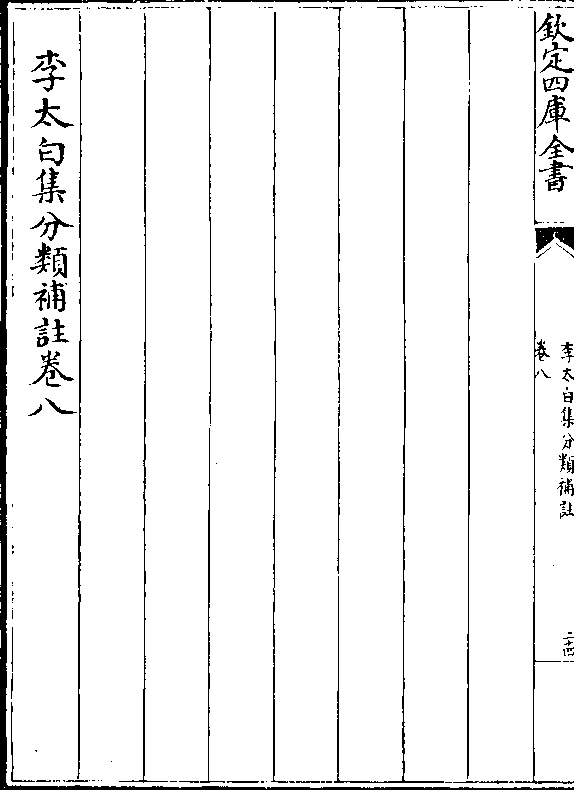 欽定四庫全書
李太白集分類補註
卷八
二十四
李太白集分類補註卷八